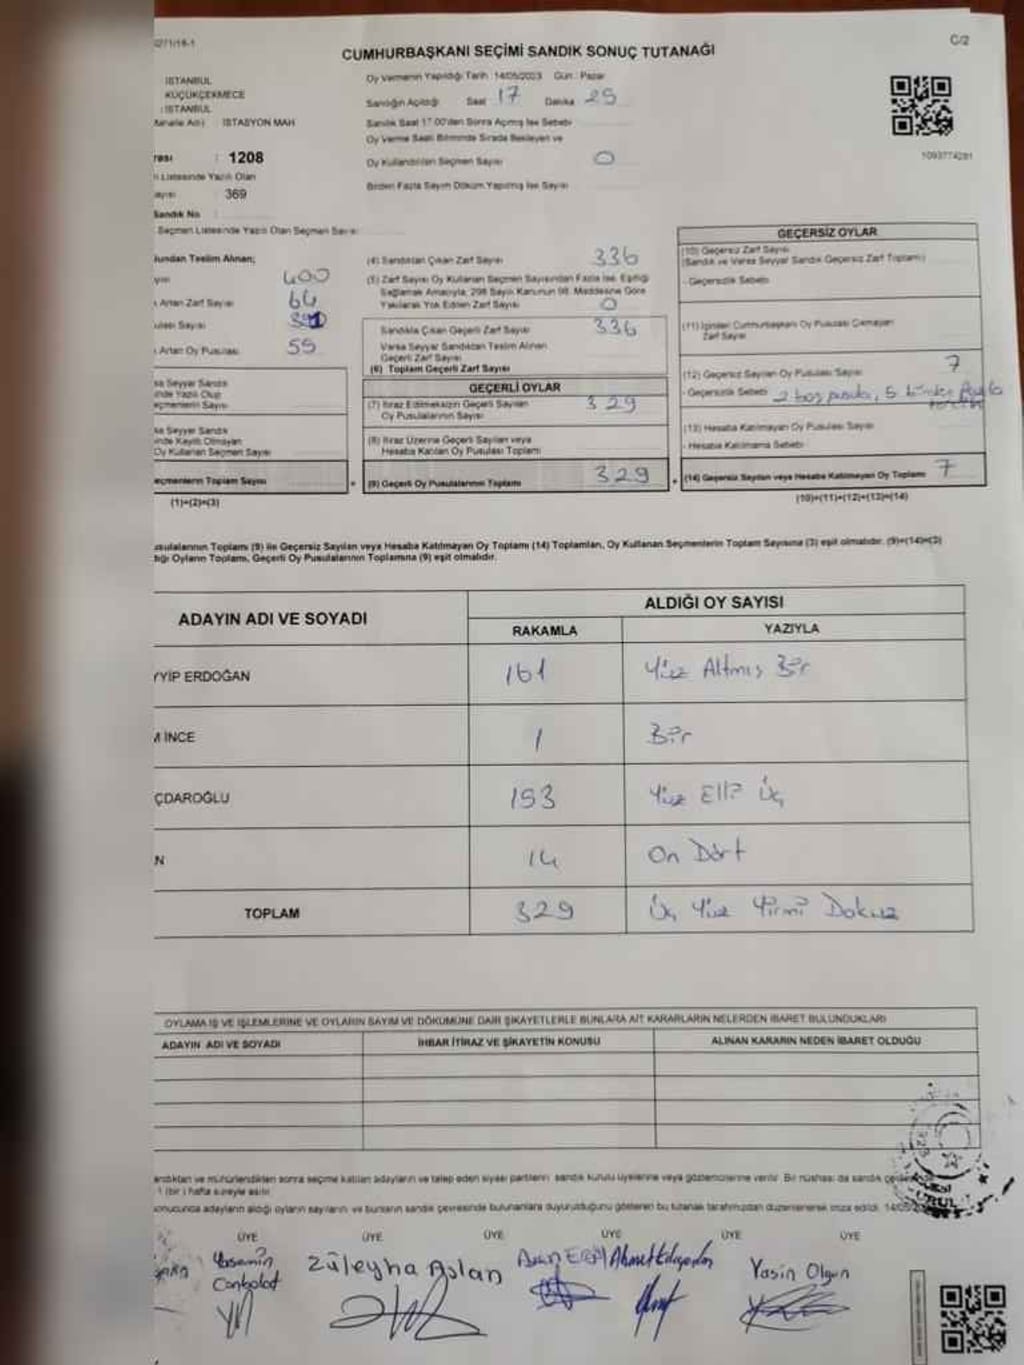 CUMHURBAŞKANI SEÇİMİ SANDIK SONUÇ TUTANAĞI
C/2
İSTANBUL
KÜÇÜKÇEKMECE
İSTANBUL
İSTASYON MAH
1208
369
Sandık No
Oy Vermenin Yapıldığı Tarih : 14/05/2023 Gün : Pazar
Sandığın Açıldığı Saat 17 Dakika 25
Sandık Saat 17.00'den Sonra Açılmış İse Sebebi
Oy Verme Saati Bitiminde Sırada Bekleyen ve
Oy Kullandırılan Seçmen Sayısı 0
Birden Fazla Sayım Döküm Yapılmış İse Sayısı
1093774281
Seçmen Listesinde Yazılı Olan Seçmen Sayısı
Teslim Alınan;
400
Artan Zarf Sayısı 64
Artan Oy Pusulası 55
(4) Sandıktan Çıkan Zarf Sayısı 336
(5) Zarf Sayısı Oy Kullanan Seçmen Sayısından Fazla İse, Eşitliği
Sağlamak Amacıyla, 298 Sayılı Kanunun 98. Maddesine Göre
Yakılarak Yok Edilen Zarf Sayısı 0
Sandıkta Çıkan Geçerli Zarf Sayısı 336
Varsa Seyyar Sandıktan Teslim Alınan
Geçerli Zarf Sayısı
(6) Toplam Geçerli Zarf Sayısı
GEÇERLİ OYLAR
(7) İtiraz Edilmeksizin Geçerli Sayılan
Oy Pusulalarının Sayısı 329
(8) İtiraz Üzerine Geçerli Sayılan veya
Hesaba Katılan Oy Pusulası Toplamı
(9) Geçerli Oy Pusulalarının Toplamı 329
GEÇERSİZ OYLAR
(10) Geçersiz Zarf Sayısı
(Sandık ve Varsa Seyyar Sandık Geçersiz Zarf Toplamı)
- Geçersizlik Sebebi
(11) İçinden Cumhurbaşkanı Oy Pusulası Çıkmayan
Zarf Sayısı
(12) Geçersiz Sayılan Oy Pusulası Sayısı 7
- Geçersizlik Sebebi 2 boş pusula, 5 birden fazla
(13) Hesaba Katılmayan Oy Pusulası Sayısı
- Hesaba Katılmama Sebebi
(14) Geçersiz Sayılan veya Hesaba Katılmayan Oy Toplamı 7
(1)+(2)=(3)
(10)+(11)+(12)+(13)=(14)
Toplamı (9) ile Geçersiz Sayılan veya Hesaba Katılmayan Oy Toplamı (14) Toplamları, Oy Kullanan Seçmenlerin Toplam Sayısına (3) eşit olmalıdır. (9)+(14)=(3)
Oyların Toplamı, Geçerli Oy Pusulalarının Toplamına (9) eşit olmalıdır.
ADAYIN ADI VE SOYADI
ALDIĞI OY SAYISI
RAKAMLA YAZIYLA
YYİP ERDOĞAN 161 Yüz Altmış Bir
M İNCE 1 Bir
ÇDAROĞLU 153 Yüz Elli Üç
N 14 On Dört
TOPLAM 329 Üç Yüz Yirmi Dokuz
OYLAMA İŞ VE İŞLEMLERİNE VE OYLARIN SAYIM VE DÖKÜMÜNE DAİR ŞİKAYETLERLE BUNLARA AİT KARARLARIN NELERDEN İBARET BULUNDUKLARI
ADAYIN ADI VE SOYADI İHBAR İTİRAZ VE ŞİKAYETİN KONUSU ALINAN KARARIN NEDEN İBARET OLDUĞU
ve mühürlendikten sonra seçime katılan adayların ve talep eden siyasi partilerin sandık kurulu üyelerine veya gözlemcilerine verilir. Bir nüshası da sandık
1 (bir) hafta süreyle asılır.
adayların aldığı oyların sayılarını ve bunların sandık çevresinde bulunanlara duyurulduğunu gösteren bu tutanak tarafımızdan düzenlenerek imza edildi.
ÜYE ÜYE ÜYE ÜYE ÜYE ÜYE
Yasemin Canbolat
Züleyha Aslan
Yasin Olgun